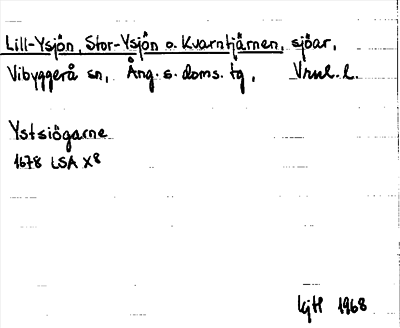 Lill-Ysjön, Stor-Ysjön o. Kvarntjärnen, sjöar,
Vibyggerå sn, Ång. s. doms. tg, Vrnl. l.
Ystsiögarne
1678 LSA X8
KjH 1968